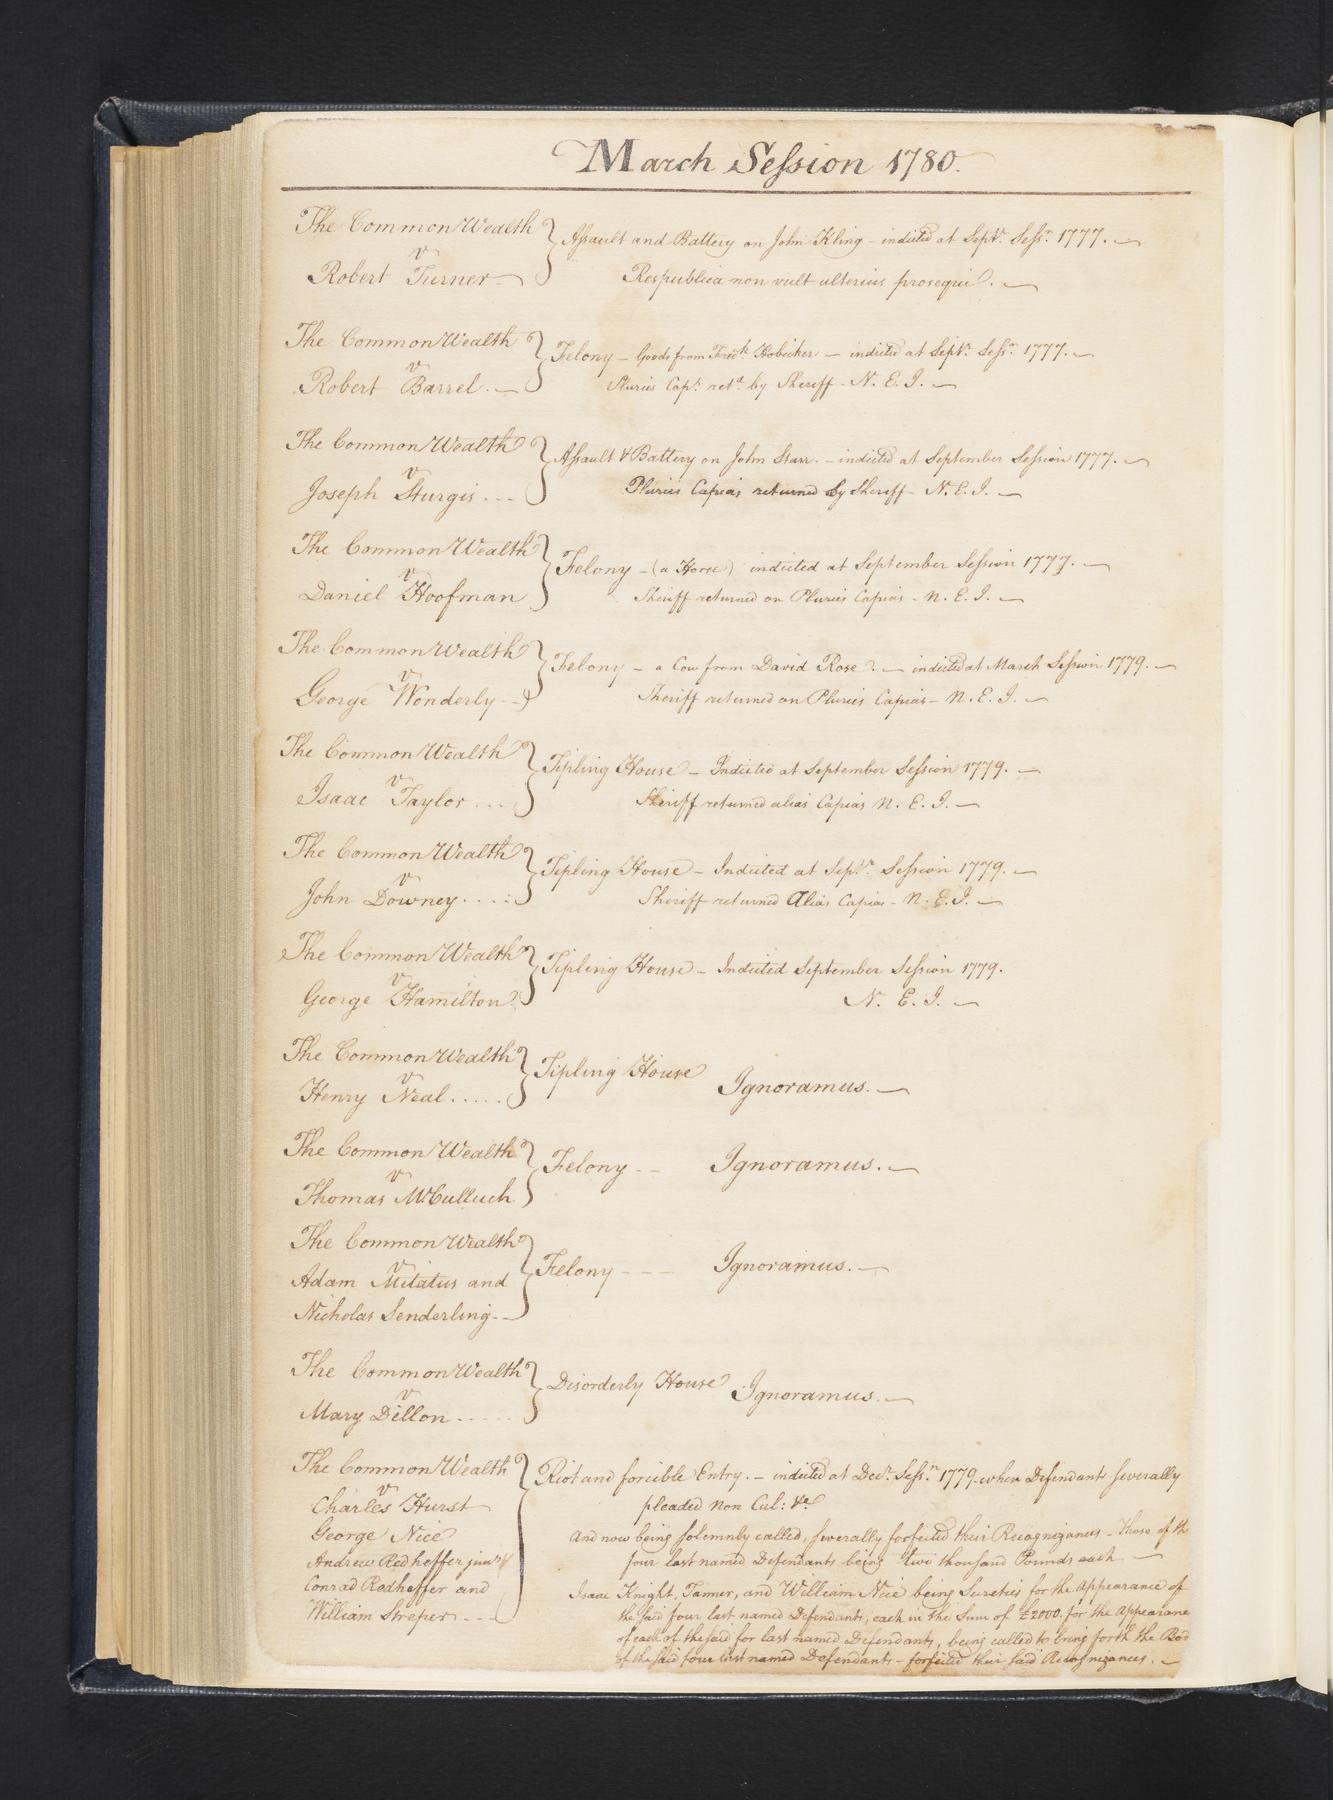 March Session 1780.
The CommonWealth
v
Robert Turner
Assault and Battery on John Kling - indicted at Sept.r Sess.n 1777.
Respublica non vult ulterius prosequi.
The CommonWealth
v
Robert Barrel.
Felony - Goods from Fred.k Hobecker - indicted at Sept.r Sess.n 1777.
Pluries Cap.s ret.d by Sheriff - N. E. I.
The CommonWealth
v
Joseph Sturgis ...
Assault & Battery on John Starr. - indicted at September Session 1777.
Pluries Capias returned by Sheriff - N. E. I.
The CommonWealth
v
Daniel Hoofman
Felony - (a Horse) indicted at September Session 1777.
Sheriff returned on Pluries Capias - N. E. I.
The CommonWealth
v
George Wonderly
Felony - a Cow from David Rose. - indicted at March Session 1779.
Sheriff returned on Pluries Capias - N. E. I.
The CommonWealth
v
Isaac Taylor ...
Tipling House - Indicted at September Session 1779.
Sheriff returned alias Capias N. E. I.
The CommonWealth
v
John Downey ....
Tipling House - Indicted at Sept.r Session 1779.
Sheriff returned Alias Capias - N. E. I.
The CommonWealth
v
George Hamilton
Tipling House - Indicted September Session 1779.
N. E. I.
The CommonWealth
v
Henry Neal .....
Tipling House Ignoramus.
The CommonWealth
v
Thomas McCulluch
Felony - - Ignoramus.
The CommonWealth
v
Adam Mitatus and
Nicholas Senderling
Felony - - - Ignoramus.
The CommonWealth
v
Mary Dillon .....
Disorderly House Ignoramus.
The CommonWealth
v
Charles Hurst
George Nice
Andrew Redheffer jun.r
Conrad Redheffer and
William Streper
Riot and forcible Entry. - indicted at Dec.r Sess.n 1779 - when Defendants severally
pleaded Non Cul: &c
And now being solemnly called, severally forfeited their Recognizances - those of th
four last named Defendants being two thousand Pounds each
Isaac Knight, Tanner, and William Nice being Sureties for the Appearance of
the said four last named Defendants, each in the Sum of £2000. for the Appearane
of each of the said for last named Defendants, being called to bring forth the Bod
of the said four last named Defendants - forfeited their said Recognizances.